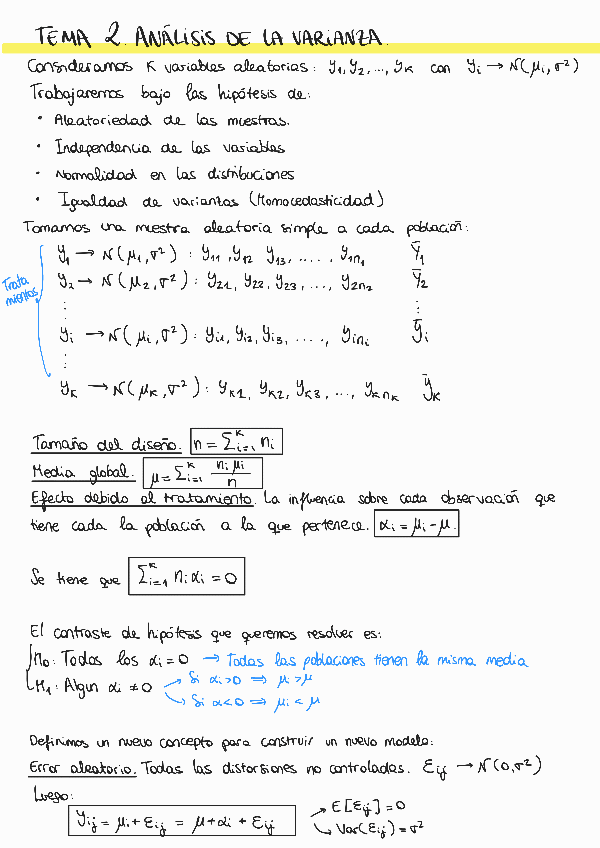 TEMA 2. ANÁLISIS DE LA VARIANZA.
Consideramos K variables aleatorias: Y₁, Y₂, ..., Yκ con Yᵢ → N(μᵢ, σ²)
Trabajaremos bajo las hipótesis de:
• Aleatoriedad de las muestras.
• Independencia de las variables
• Normalidad en las distribuciones
• Igualdad de varianzas (Homocedasticidad)
Tomamos una muestra aleatoria simple a cada población:
Y₁ → N(μ₁, σ²) : Y₁₁, Y₁₂ Y₁₃, ....., Y₁n₁ Ȳ₁
Tratamientos
Y₂ → N(μ₂, σ²) : Y₂₁, Y₂₂, Y₂₃, ..., Y₂n₂ Ȳ₂
⋮ ⋮
Yᵢ → N(μᵢ, σ²) : Yᵢ₁, Yᵢ₂, Yᵢ₃, ...., Yᵢnᵢ Ȳᵢ
⋮
Yκ → N(μκ, σ²) : Yκ₁, Yκ₂, Yκ₃, ..., Yκnκ Ȳκ
Tamaño del diseño. n = Σᵢ₌₁ᴷ nᵢ
Media global. μ = Σᵢ₌₁ᴷ nᵢ μᵢ / n
Efecto debido al tratamiento. La influencia sobre cada observación que
tiene cada la población a la que pertenece. αᵢ = μᵢ - μ.
Se tiene que Σᵢ₌₁ᴷ nᵢ αᵢ = 0
El contraste de hipótesis que queremos resolver es:
H₀: Todos los αᵢ = 0 → Todas las poblaciones tienen la misma media
H₁: Algun αᵢ ≠ 0 → Si αᵢ > 0 ⇒ μᵢ > μ
→ Si α < 0 ⇒ μᵢ < μ
Definimos un nuevo concepto para construir un nuevo modelo:
Error aleatorio. Todas las distorsiones no controladas. Ɛᵢⱼ → N(0, σ²)
Luego:
Yᵢⱼ = μᵢ + Ɛᵢⱼ = μ + αᵢ + Ɛᵢⱼ → E[Ɛᵢⱼ] = 0
→ Var(Ɛᵢⱼ) = σ²